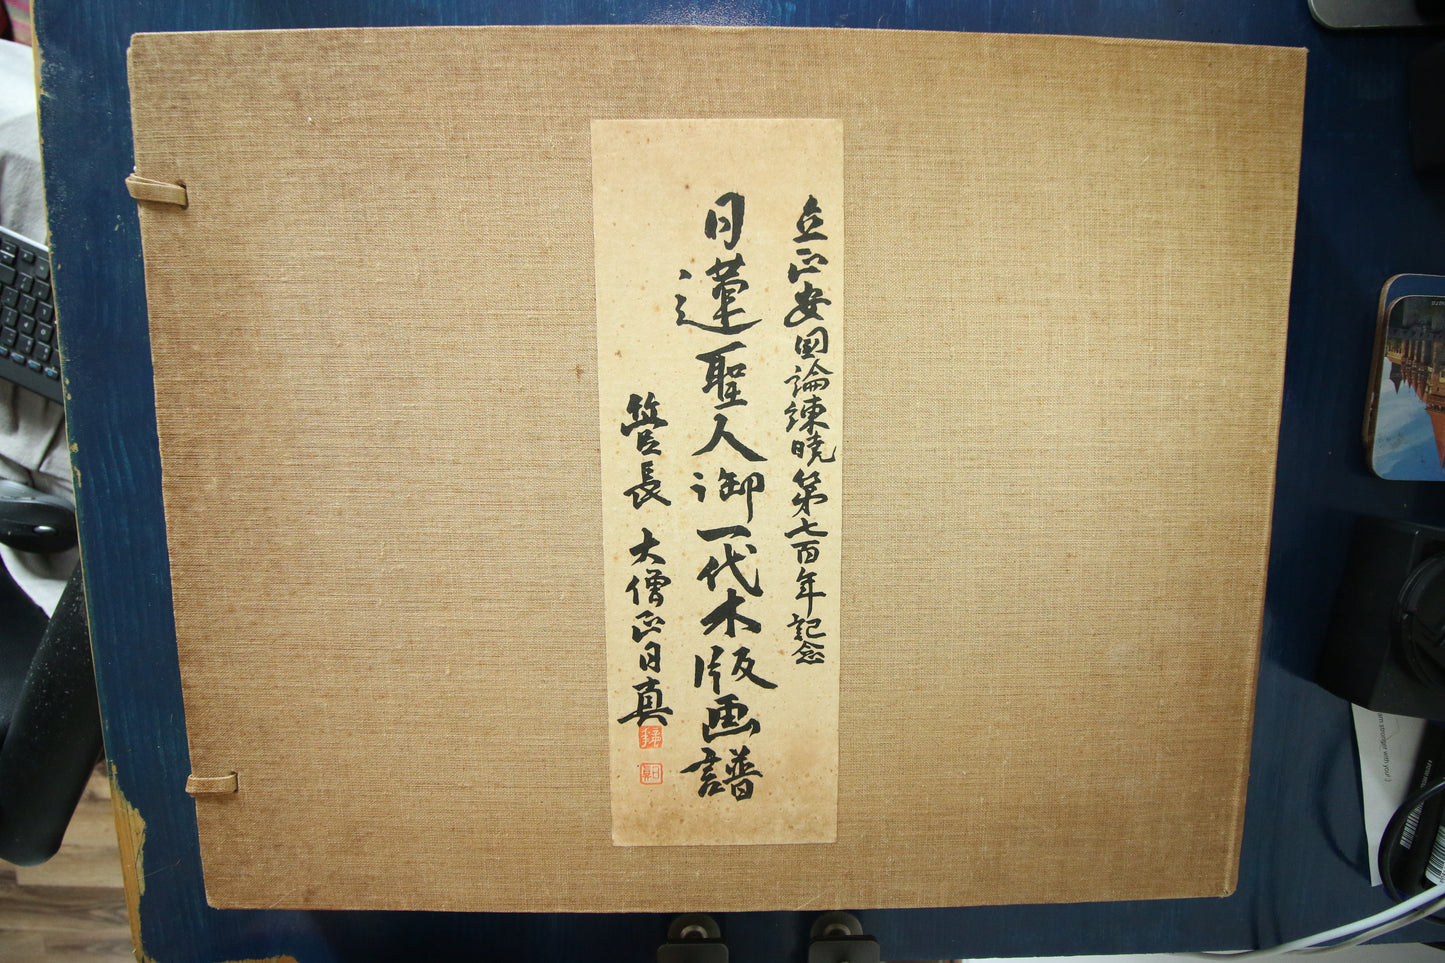 立正安国論諌暁第七百年記念
日蓮聖人御一代木版画譜
管長 大僧正日真